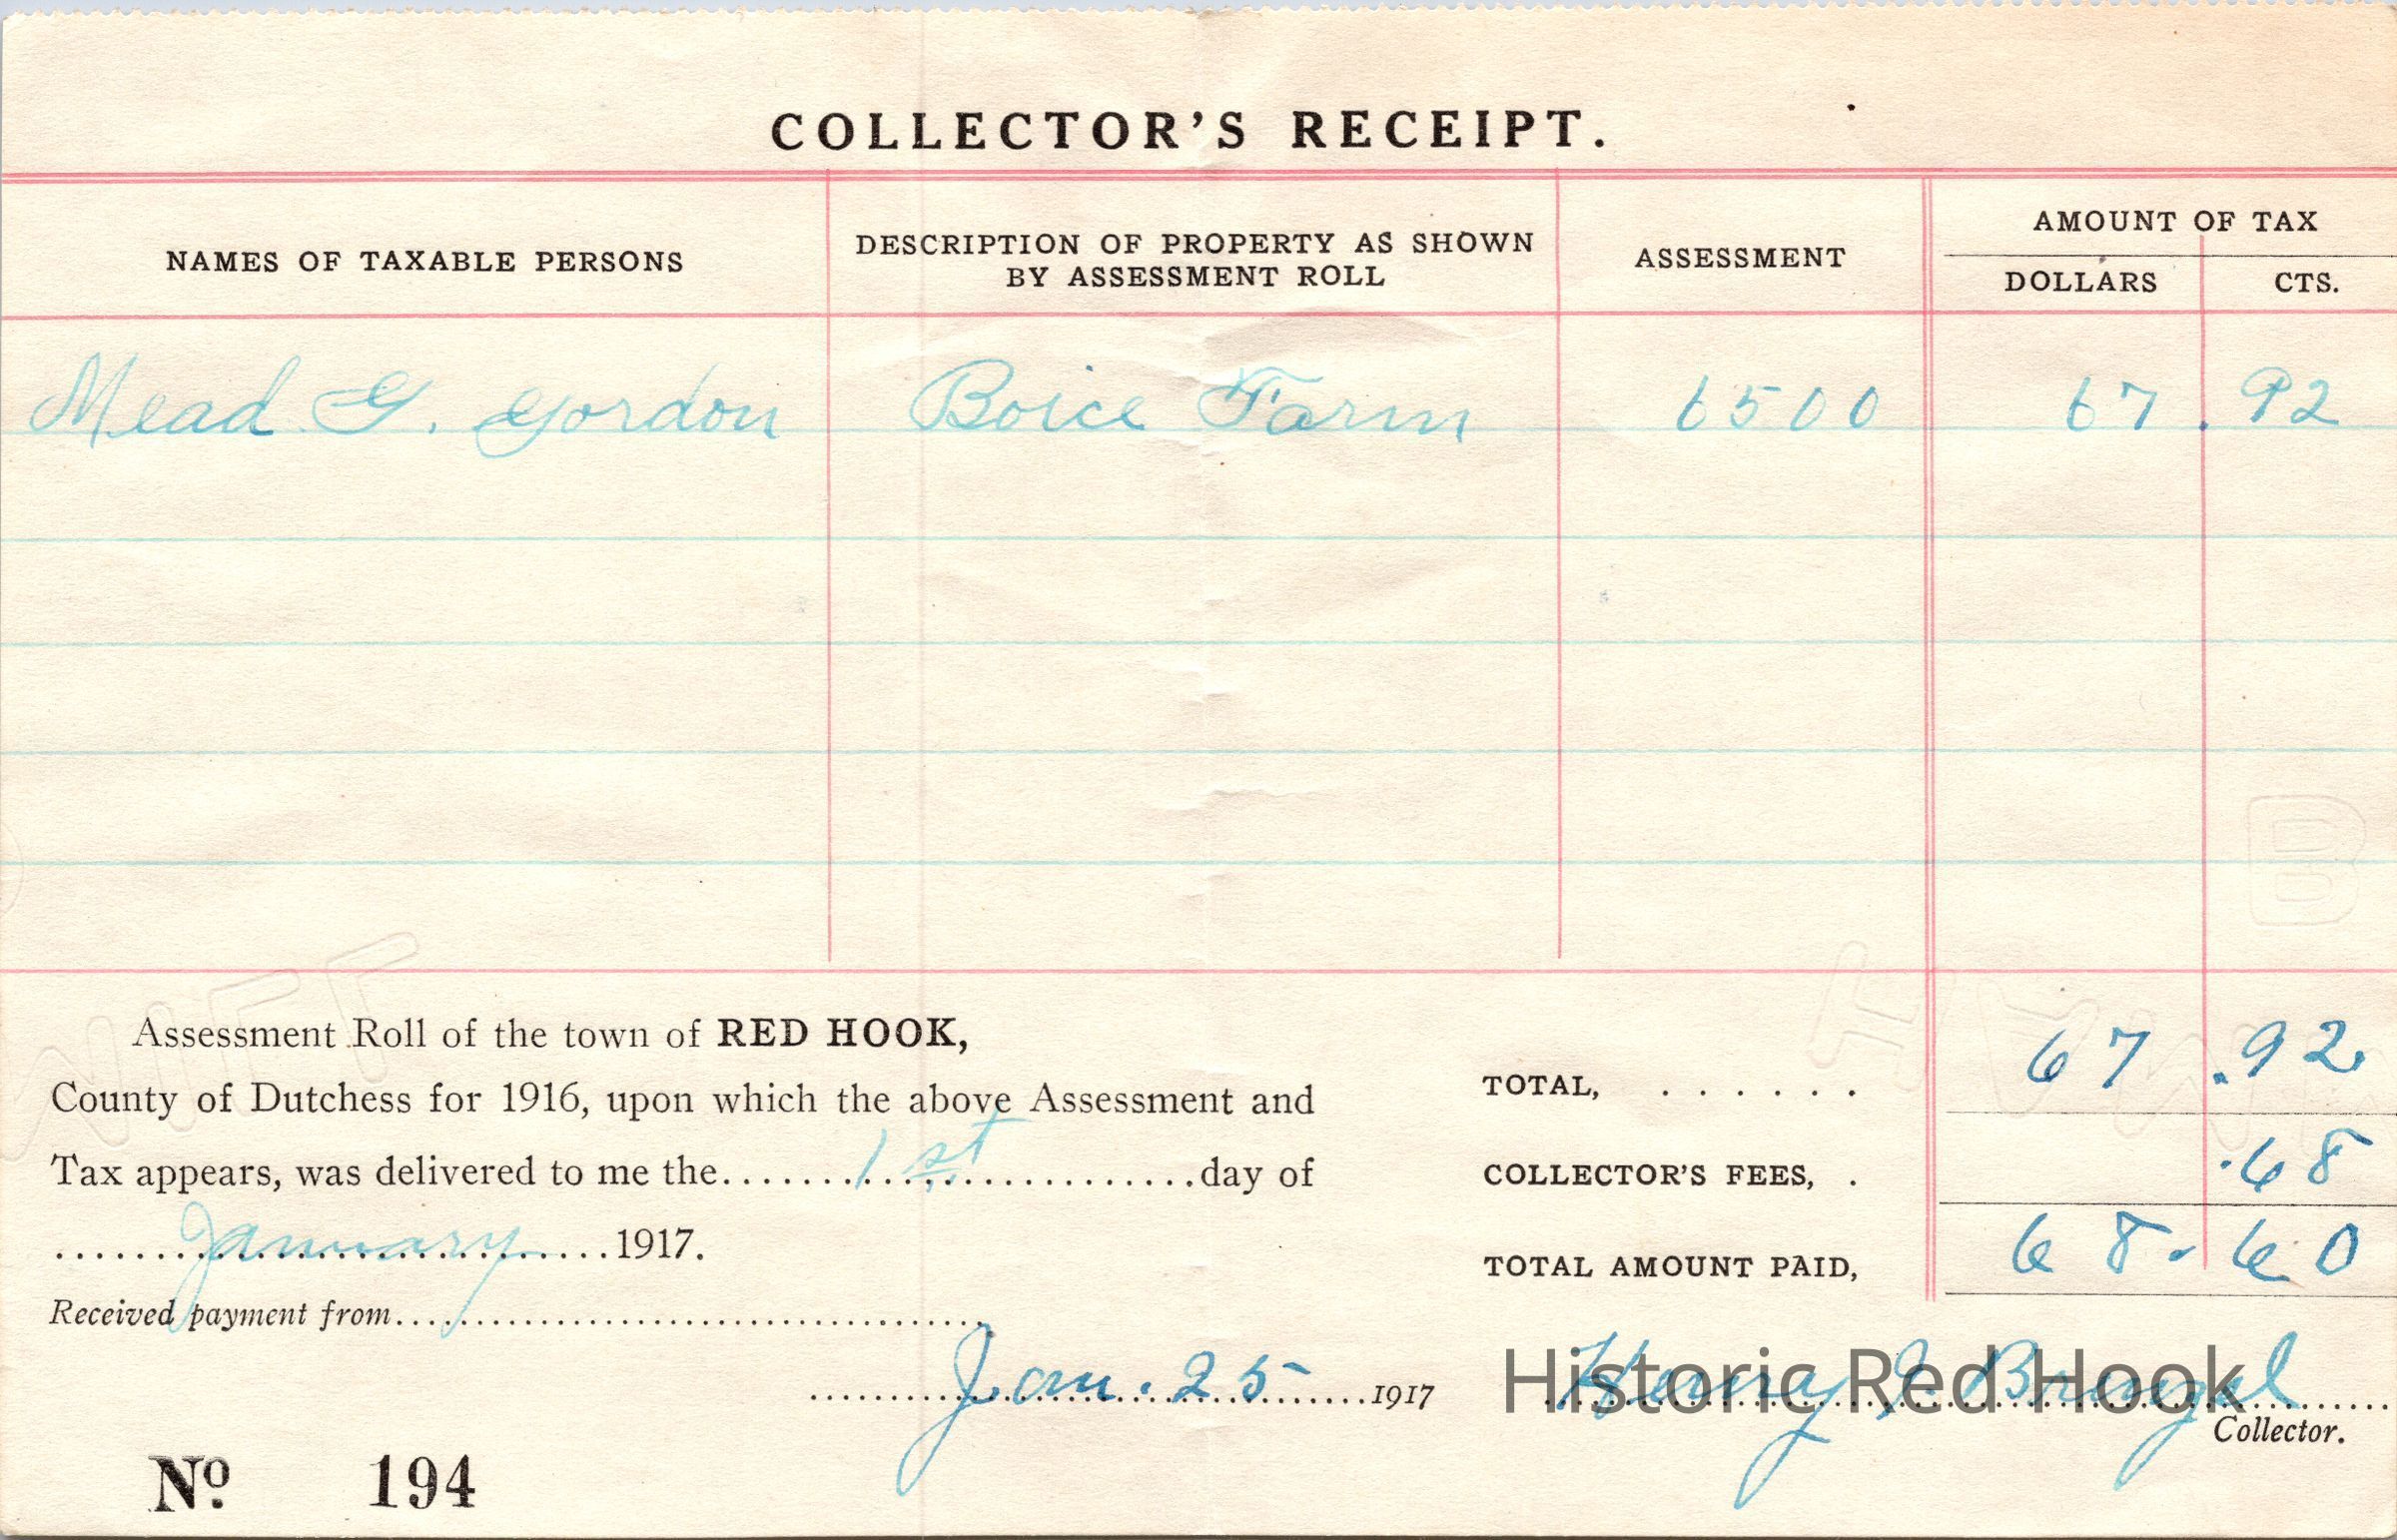 COLLECTOR'S RECEIPT.
NAMES OF TAXABLE PERSONS
DESCRIPTION OF PROPERTY AS SHOWN
BY ASSESSMENT ROLL
ASSESSMENT
AMOUNT OF TAX
DOLLARS CTS.
Mead G. Gordon Boice Farm 6500 67.92
Assessment Roll of the town of RED HOOK,
County of Dutchess for 1916, upon which the above Assessment and
Tax appears, was delivered to me the 1st day of
January 1917.
Received payment from
Jan. 25 1917
No 194
TOTAL, 67.92
COLLECTOR'S FEES, .68
TOTAL AMOUNT PAID, 68.60
Henry J.
Historic Red Hook
Collector.